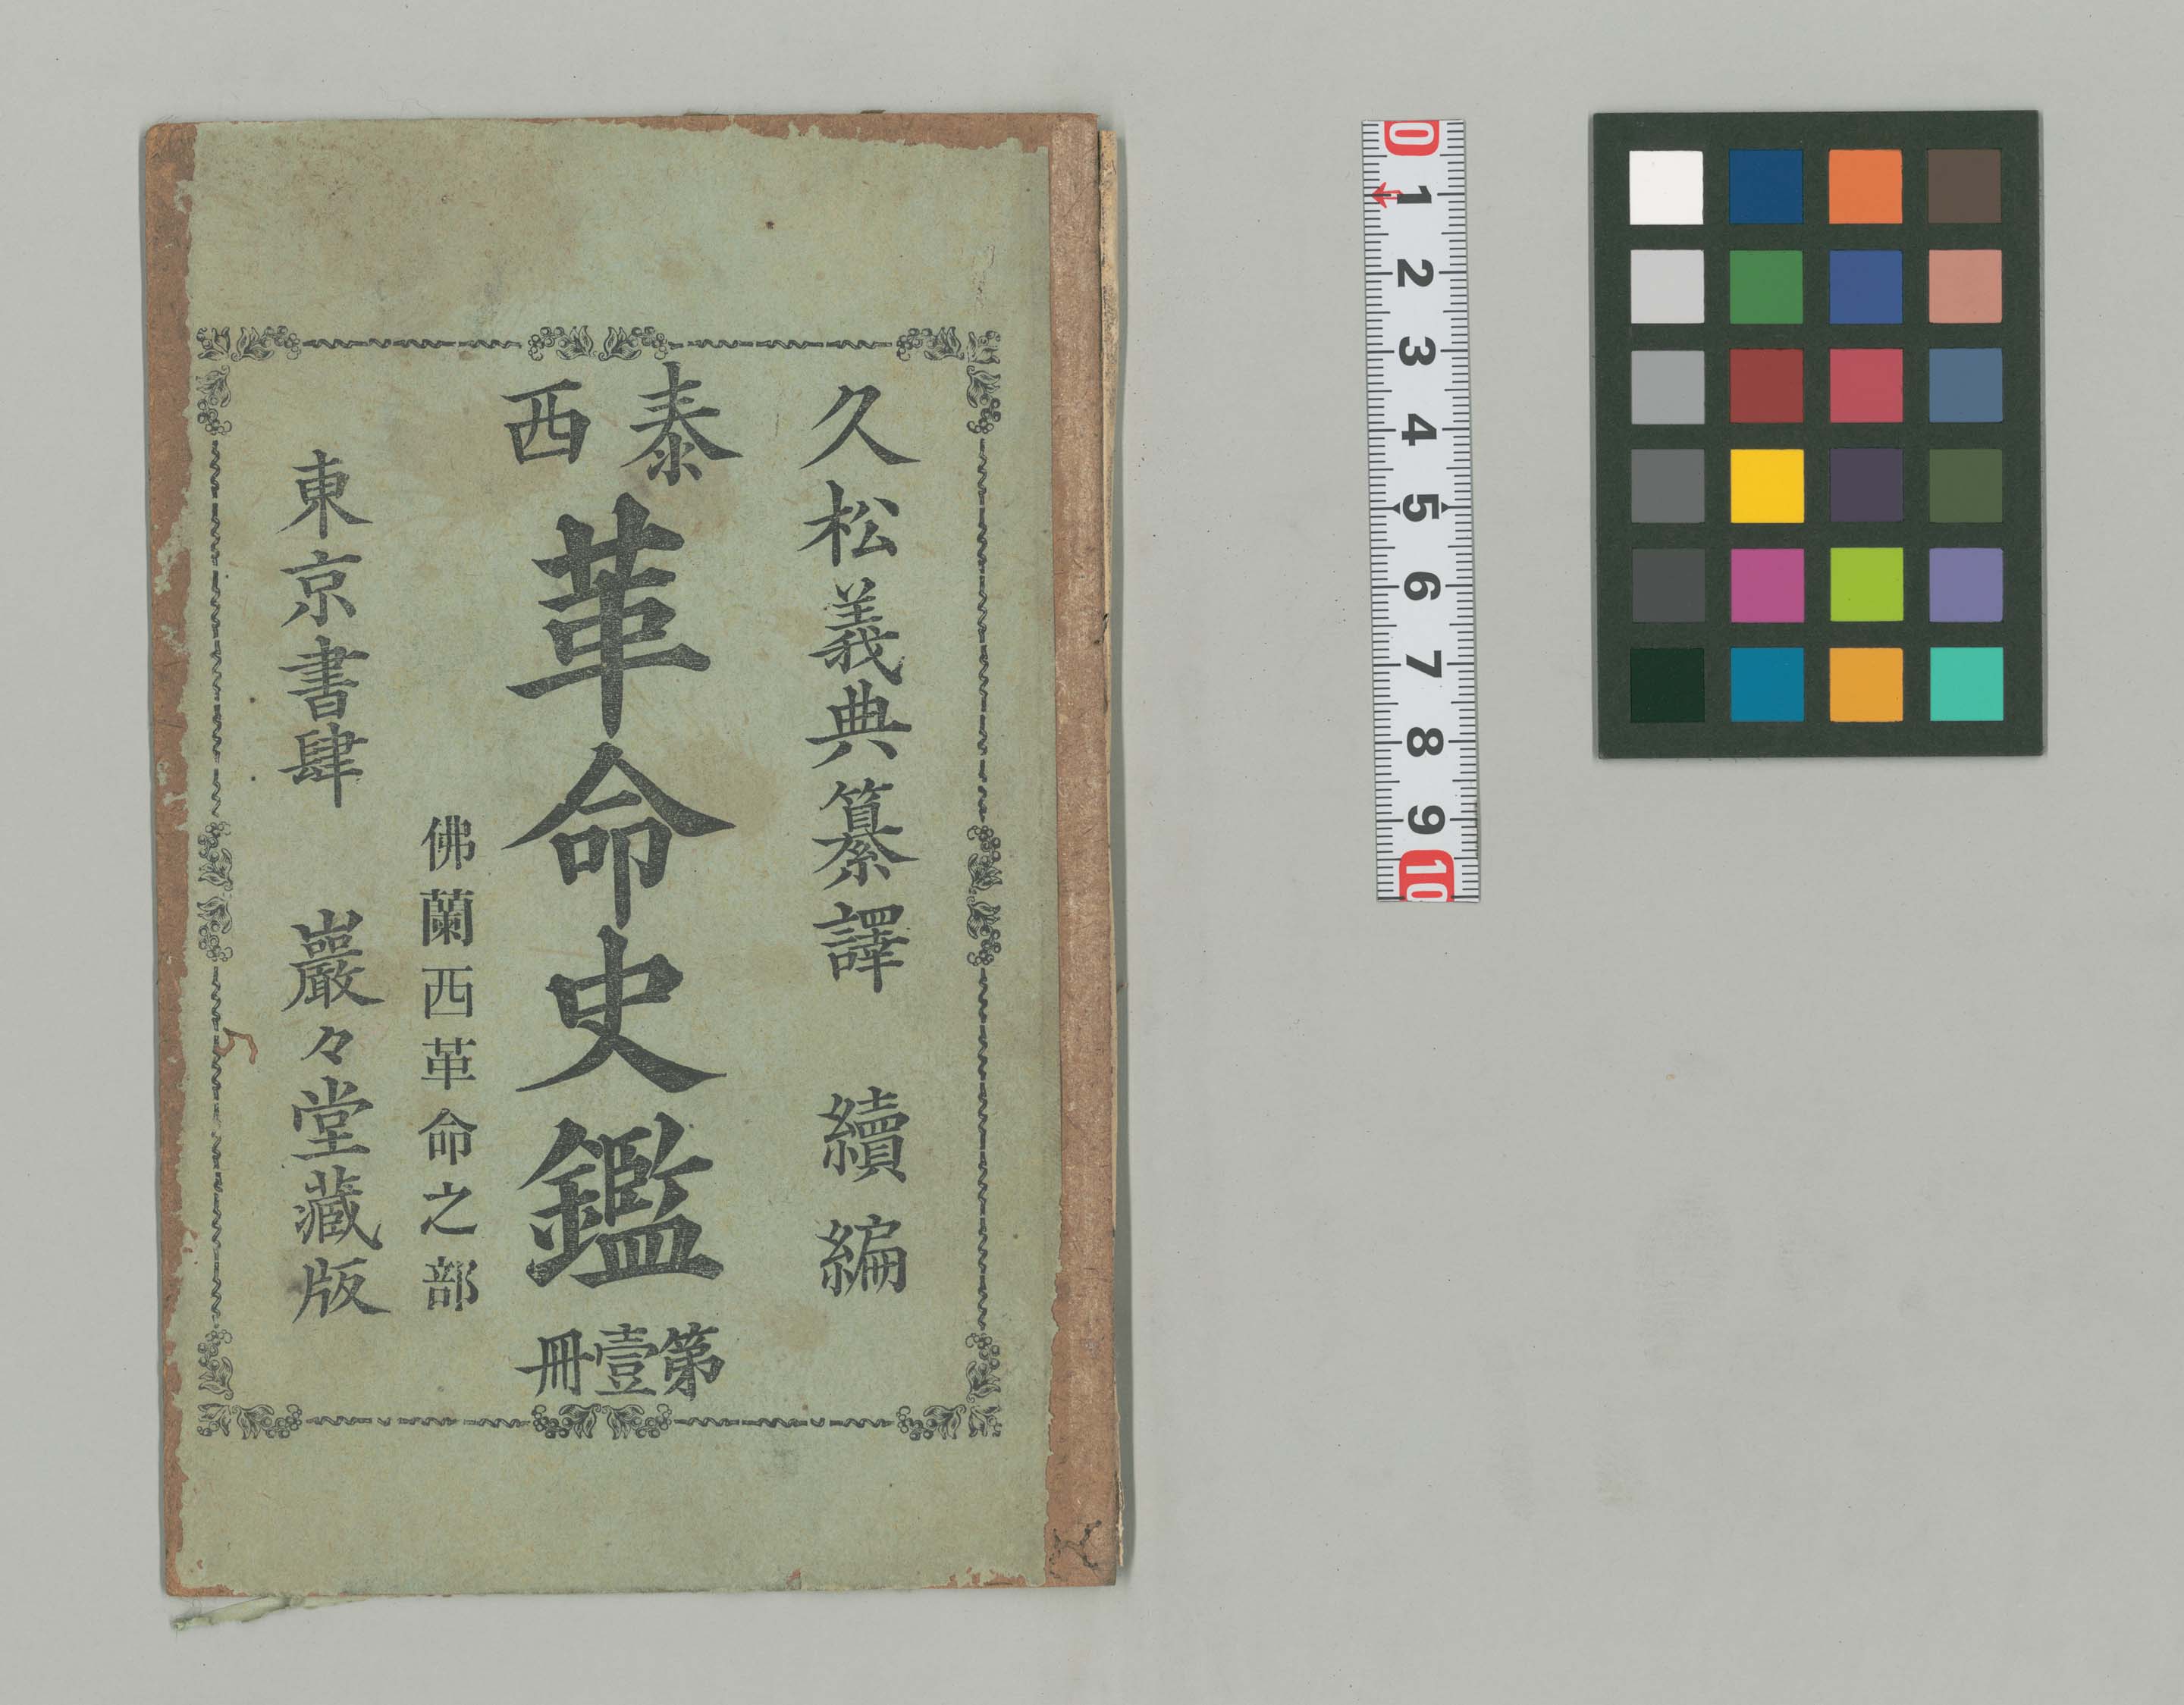 久松義典纂譯 續編
泰西
革命史鑑
第壹冊
佛蘭西革命之部
東京書肆 巖々堂藏版
0
1
2
3
4
5
6
7
8
9
10